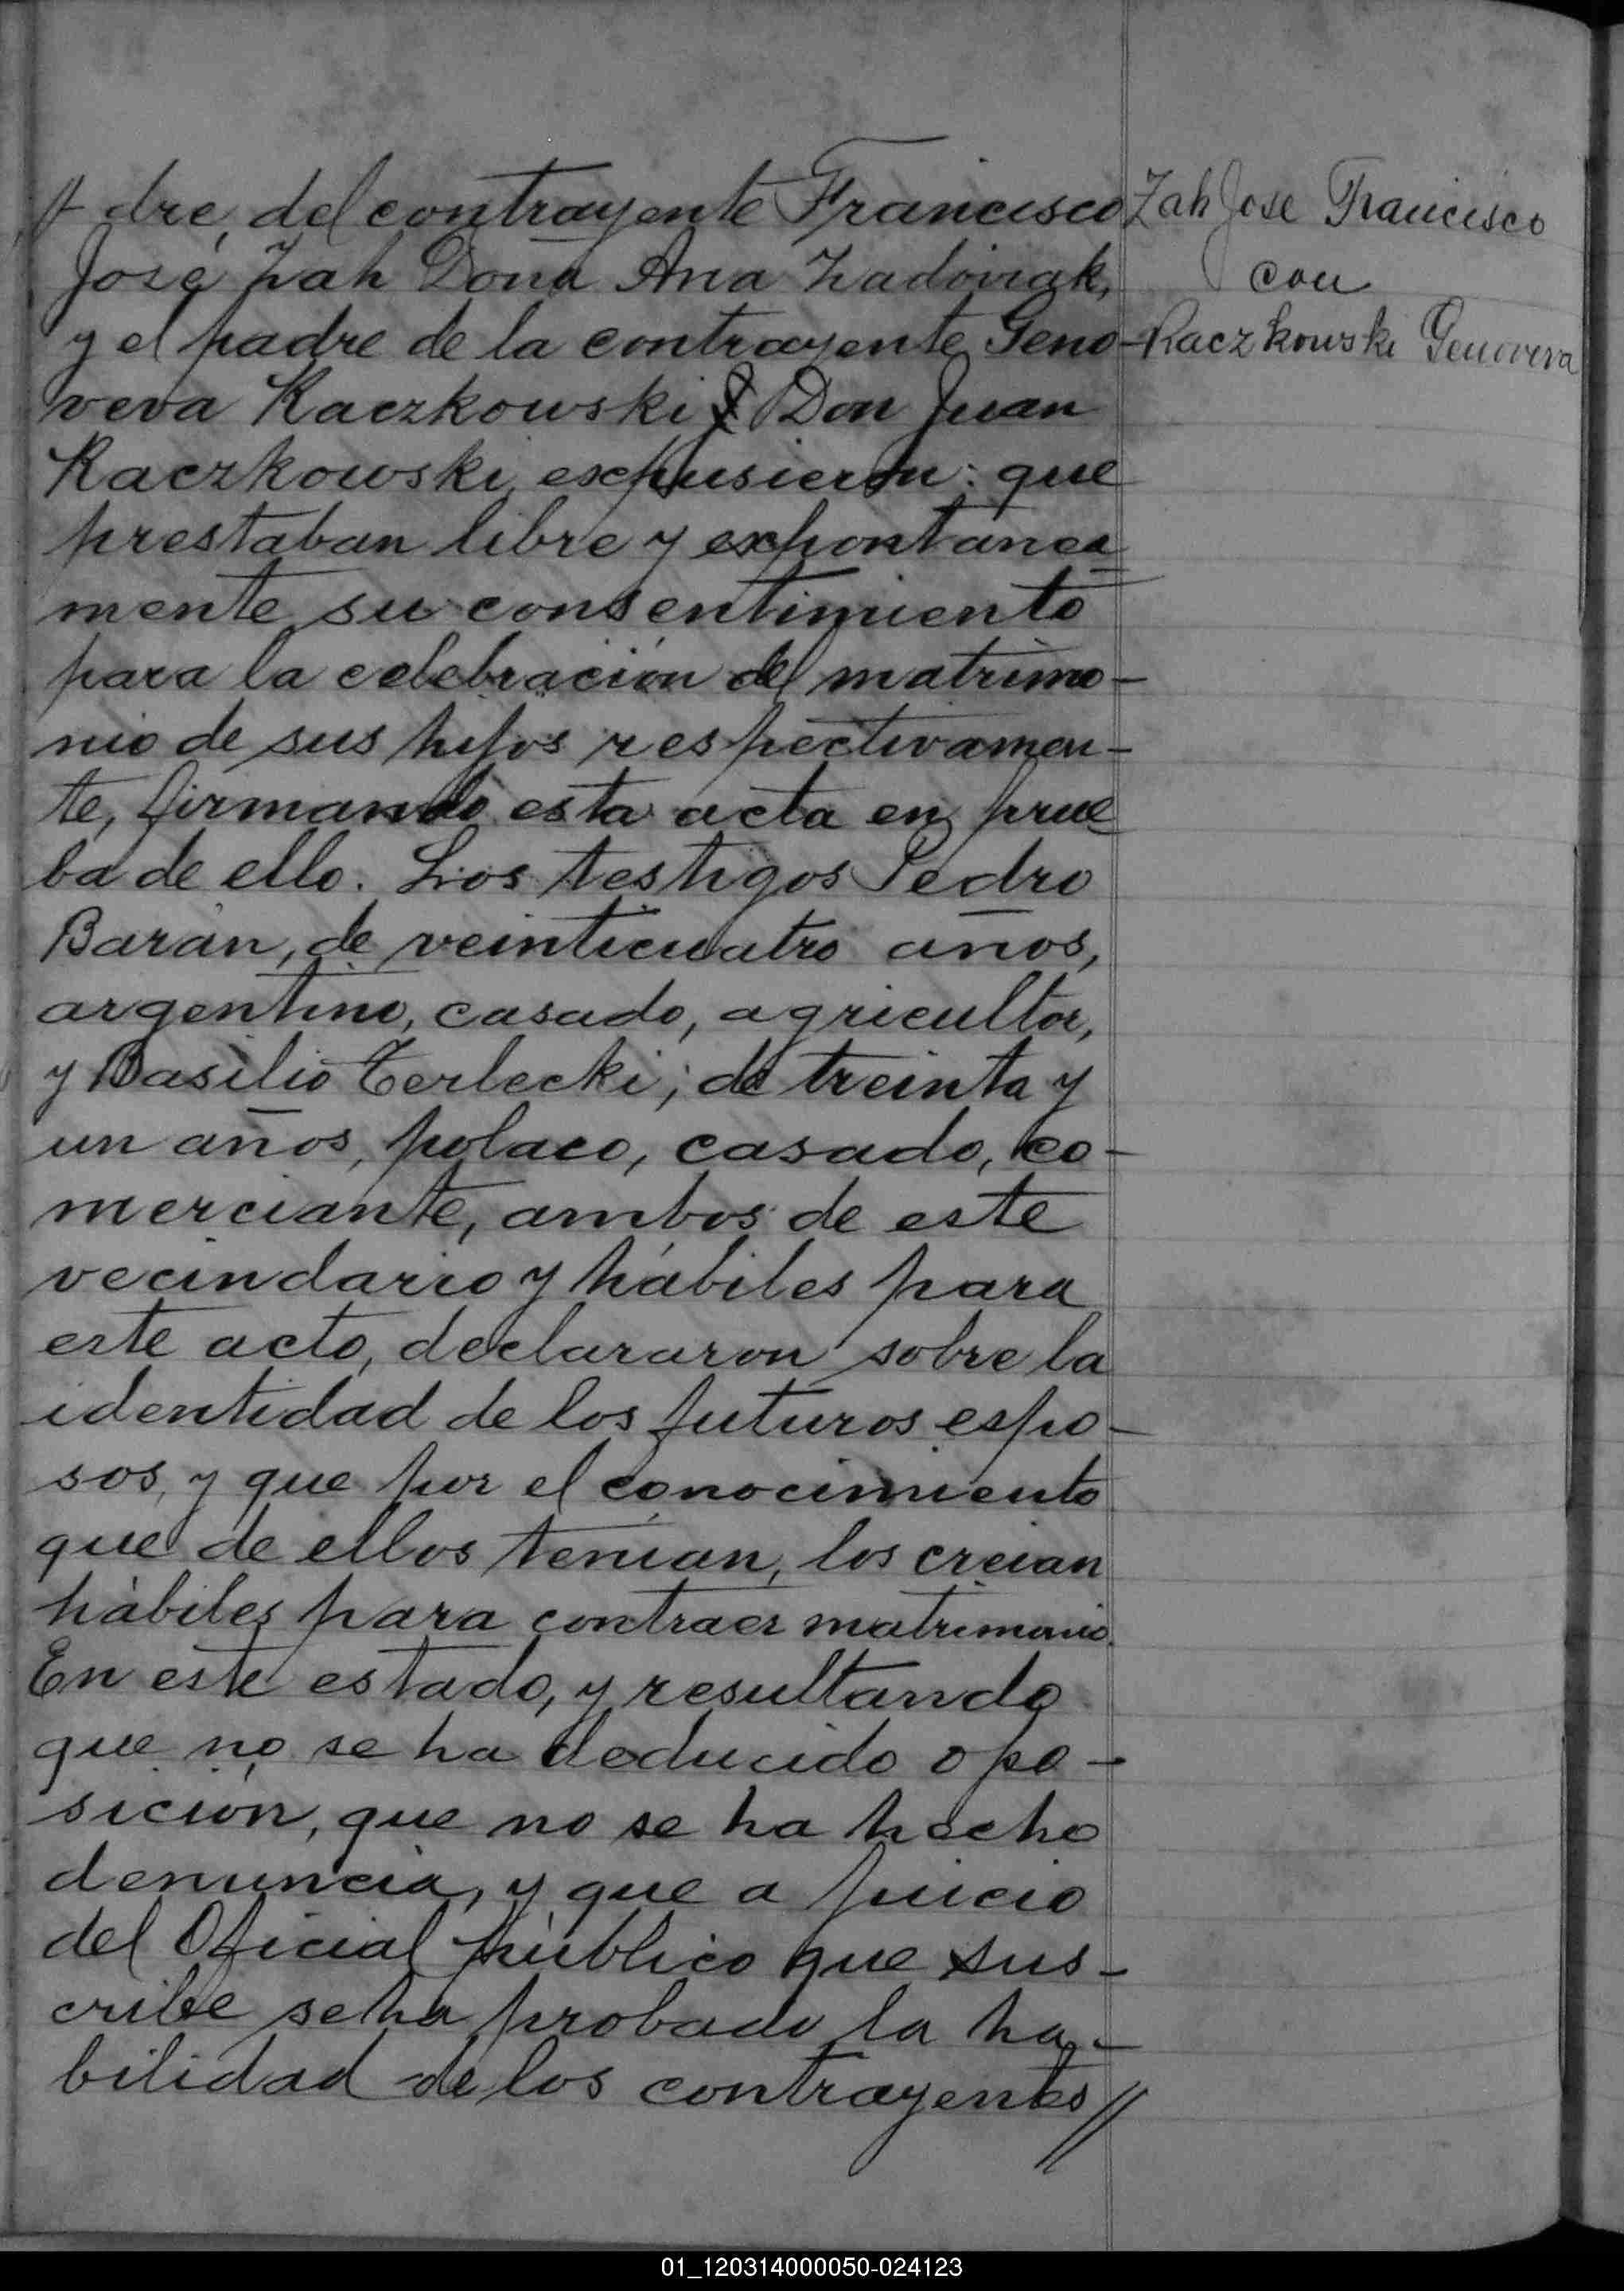 dre, del contrayente Francisco
José Zah Doña Ana Zadoirak,
y el padre de la contrayente Geno-
veva Kaczkowski Don Juan
Kaczkowski, expusieron: que
prestaban libre y expontanea
mente su consentimiento
para la celebración del matrimo-
nio de sus hijos respectivamen-
te, firmando esta acta en prue
ba de ello. Los testigos Pedro
Barán, de veinticuatro años,
argentino, casado, agricultor,
y Basilio Terlecki, de treinta y
un años, polaco, casado, co-
merciante, ambos de este
vecindario y hábiles para
este acto, declararon sobre la
identidad de los futuros espo-
sos, y que por el conocimiento
que de ellos tenían, los creían
hábiles para contraer matrimonio.
En este estado, y resultando
que no se ha deducido opo-
sición, que no se ha hecho
denuncia, y que a juicio
del Oficial público que sus-
cribe se ha probado la ha-
bilidad de los contrayentes//
Zah Jose Francisco
con
Kaczkowski Genoveva
01_120314000050-024123